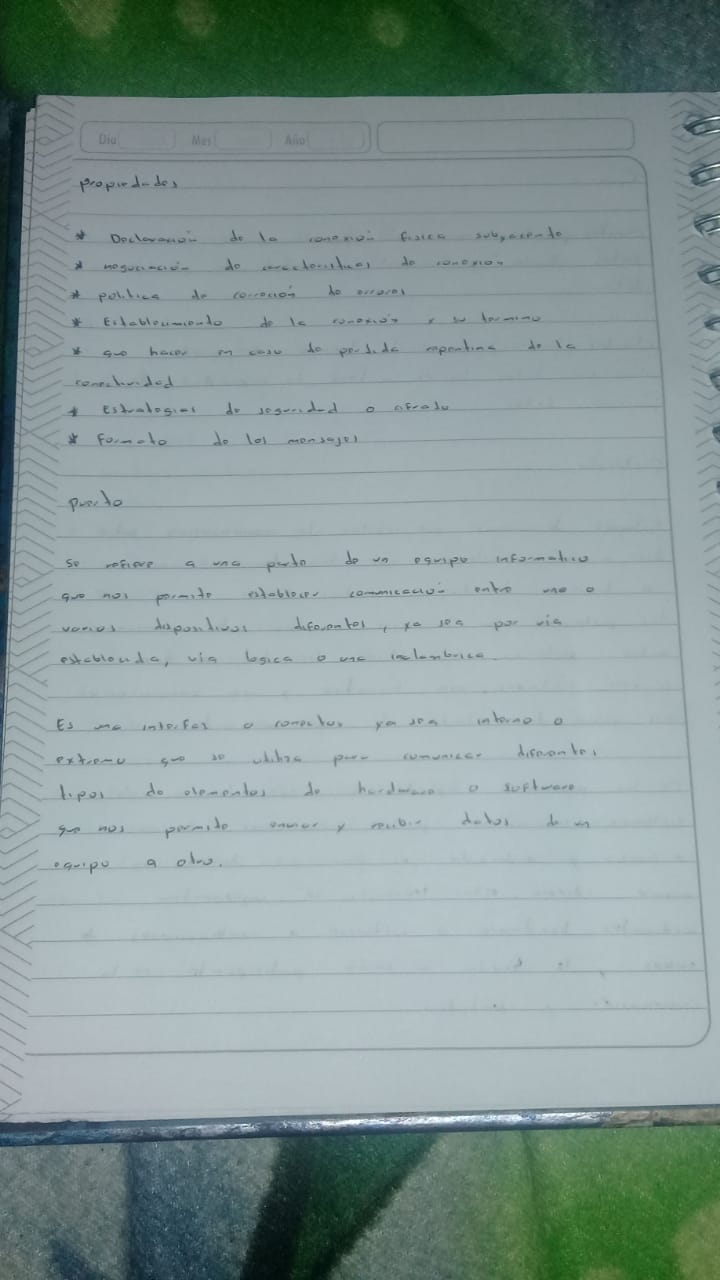 Dia Mes Año
propiedades
* Declaración de la conexión fisica subyacente
* negociación de caracteristicas de conexion
* politica de corrección de errores
* Establecimiento de la conexión y su termino
* que hacer en caso de perdida repentina de la
conectividad
* Estrategias de seguridad o cifrado
* Formato de los mensajes
puerto
se refiere a una parte de un equipo informatico
que nos permite establecer comunicación entre uno o
varios dispositivos diferentes, ya sea por via
establecida, via logica o una inalambrica.
Es una interfaz o conector ya sea interno o
externo que se utiliza para comunicar diferentes
tipos de elementos de hardware o software
que nos permite enviar y recibir datos de un
equipo a otro.